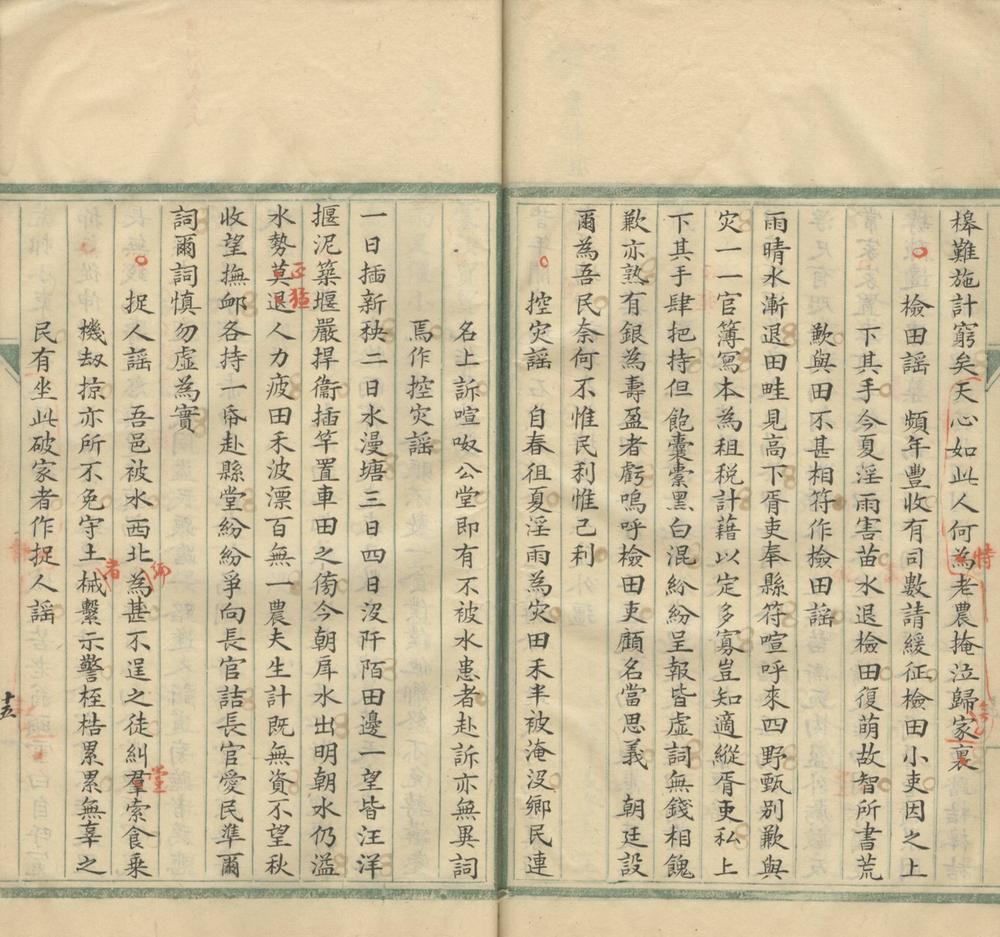 槔難施計窮矣天心如此人何為老農掩泣歸家裏
特
檢田謡　頻年豐收有司數請緩征檢田小吏因之上
下其手今夏淫雨害苗水退檢田復萌故智所書荒
歉與田不甚相符作檢田謡
雨晴水漸退田畦見高下胥吏奉縣符喧呼來四野甄别歉與
灾一一官簿寫本為租税計藉以定多寡豈知適縱胥吏私上
下其手肆把持但飽囊橐黑白混紛紛呈報皆虚詞無錢相餽
歉亦熟有銀為壽盈者虧嗚呼檢田吏顧名當思義　朝廷設
爾為吾民奈何不惟民利惟己利
控灾謡　自春徂夏淫雨為灾田禾半被淹没鄉民連
名上訴喧呶公堂即有不被水患者赴訴亦無異詞
焉作控灾謡
一日插新秧二日水漫塘三日四日没阡陌田邊一望皆汪洋
堰泥築堰嚴捍衞插竿置車田之傍今朝戽水出明朝水仍溢
水勢莫退人力疲田禾波漂百無一農夫生計既無資不望秋
正猛
收望撫邮各持一帋赴縣堂紛紛爭向長官詰長官愛民準爾
詞爾詞慎勿虚為實
捉人謡　吾邑被水西北為甚不逞之徒糾羣索食乘
鄉
堂
機刼掠亦所不免守土械繫示警桎梏累累無辜之
者
民有坐此破家者作捉人謡
十五